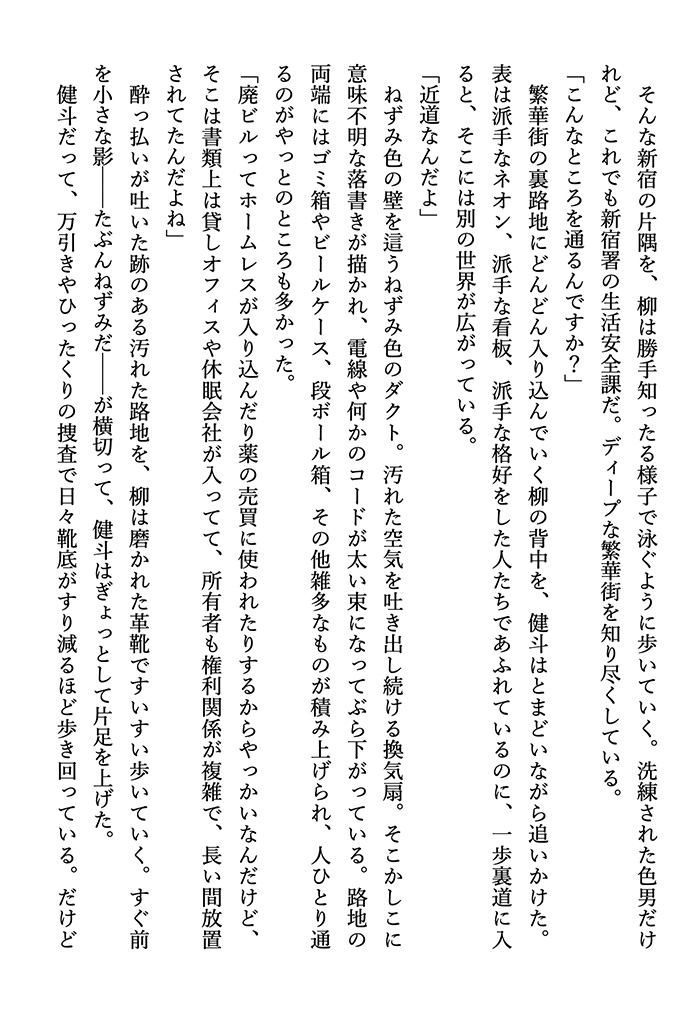 そんな新宿の片隅を、柳は勝手知ったる様子で泳ぐように歩いていく。洗練された色男だけ
れど、これでも新宿署の生活安全課だ。ディープな繁華街を知り尽くしている。
「こんなところを通るんですか？」
　繁華街の裏路地にどんどん入り込んでいく柳の背中を、健斗はとまどいながら追いかけた。
表は派手なネオン、派手な看板、派手な格好をした人たちであふれているのに、一歩裏道に入
ると、そこには別の世界が広がっている。
「近道なんだよ」
　ねずみ色の壁を這うねずみ色のダクト。汚れた空気を吐き出し続ける換気扇。そこかしこに
意味不明な落書きが描かれ、電線や何かのコードが太い束になってぶら下がっている。路地の
両端にはゴミ箱やビールケース、段ボール箱、その他雑多なものが積み上げられ、人ひとり通
るのがやっとのところも多かった。
「廃ビルってホームレスが入り込んだり薬の売買に使われたりするからやっかいなんだけど、
そこは書類上は貸しオフィスや休眠会社が入ってて、所有者も権利関係が複雑で、長い間放置
されてたんだよね」
　酔っ払いが吐いた跡のある汚れた路地を、柳は磨かれた革靴ですいすい歩いていく。すぐ前
を小さな影――たぶんねずみだ――が横切って、健斗はぎょっとして片足を上げた。
　健斗だって、万引きやひったくりの捜査で日々靴底がすり減るほど歩き回っている。だけど